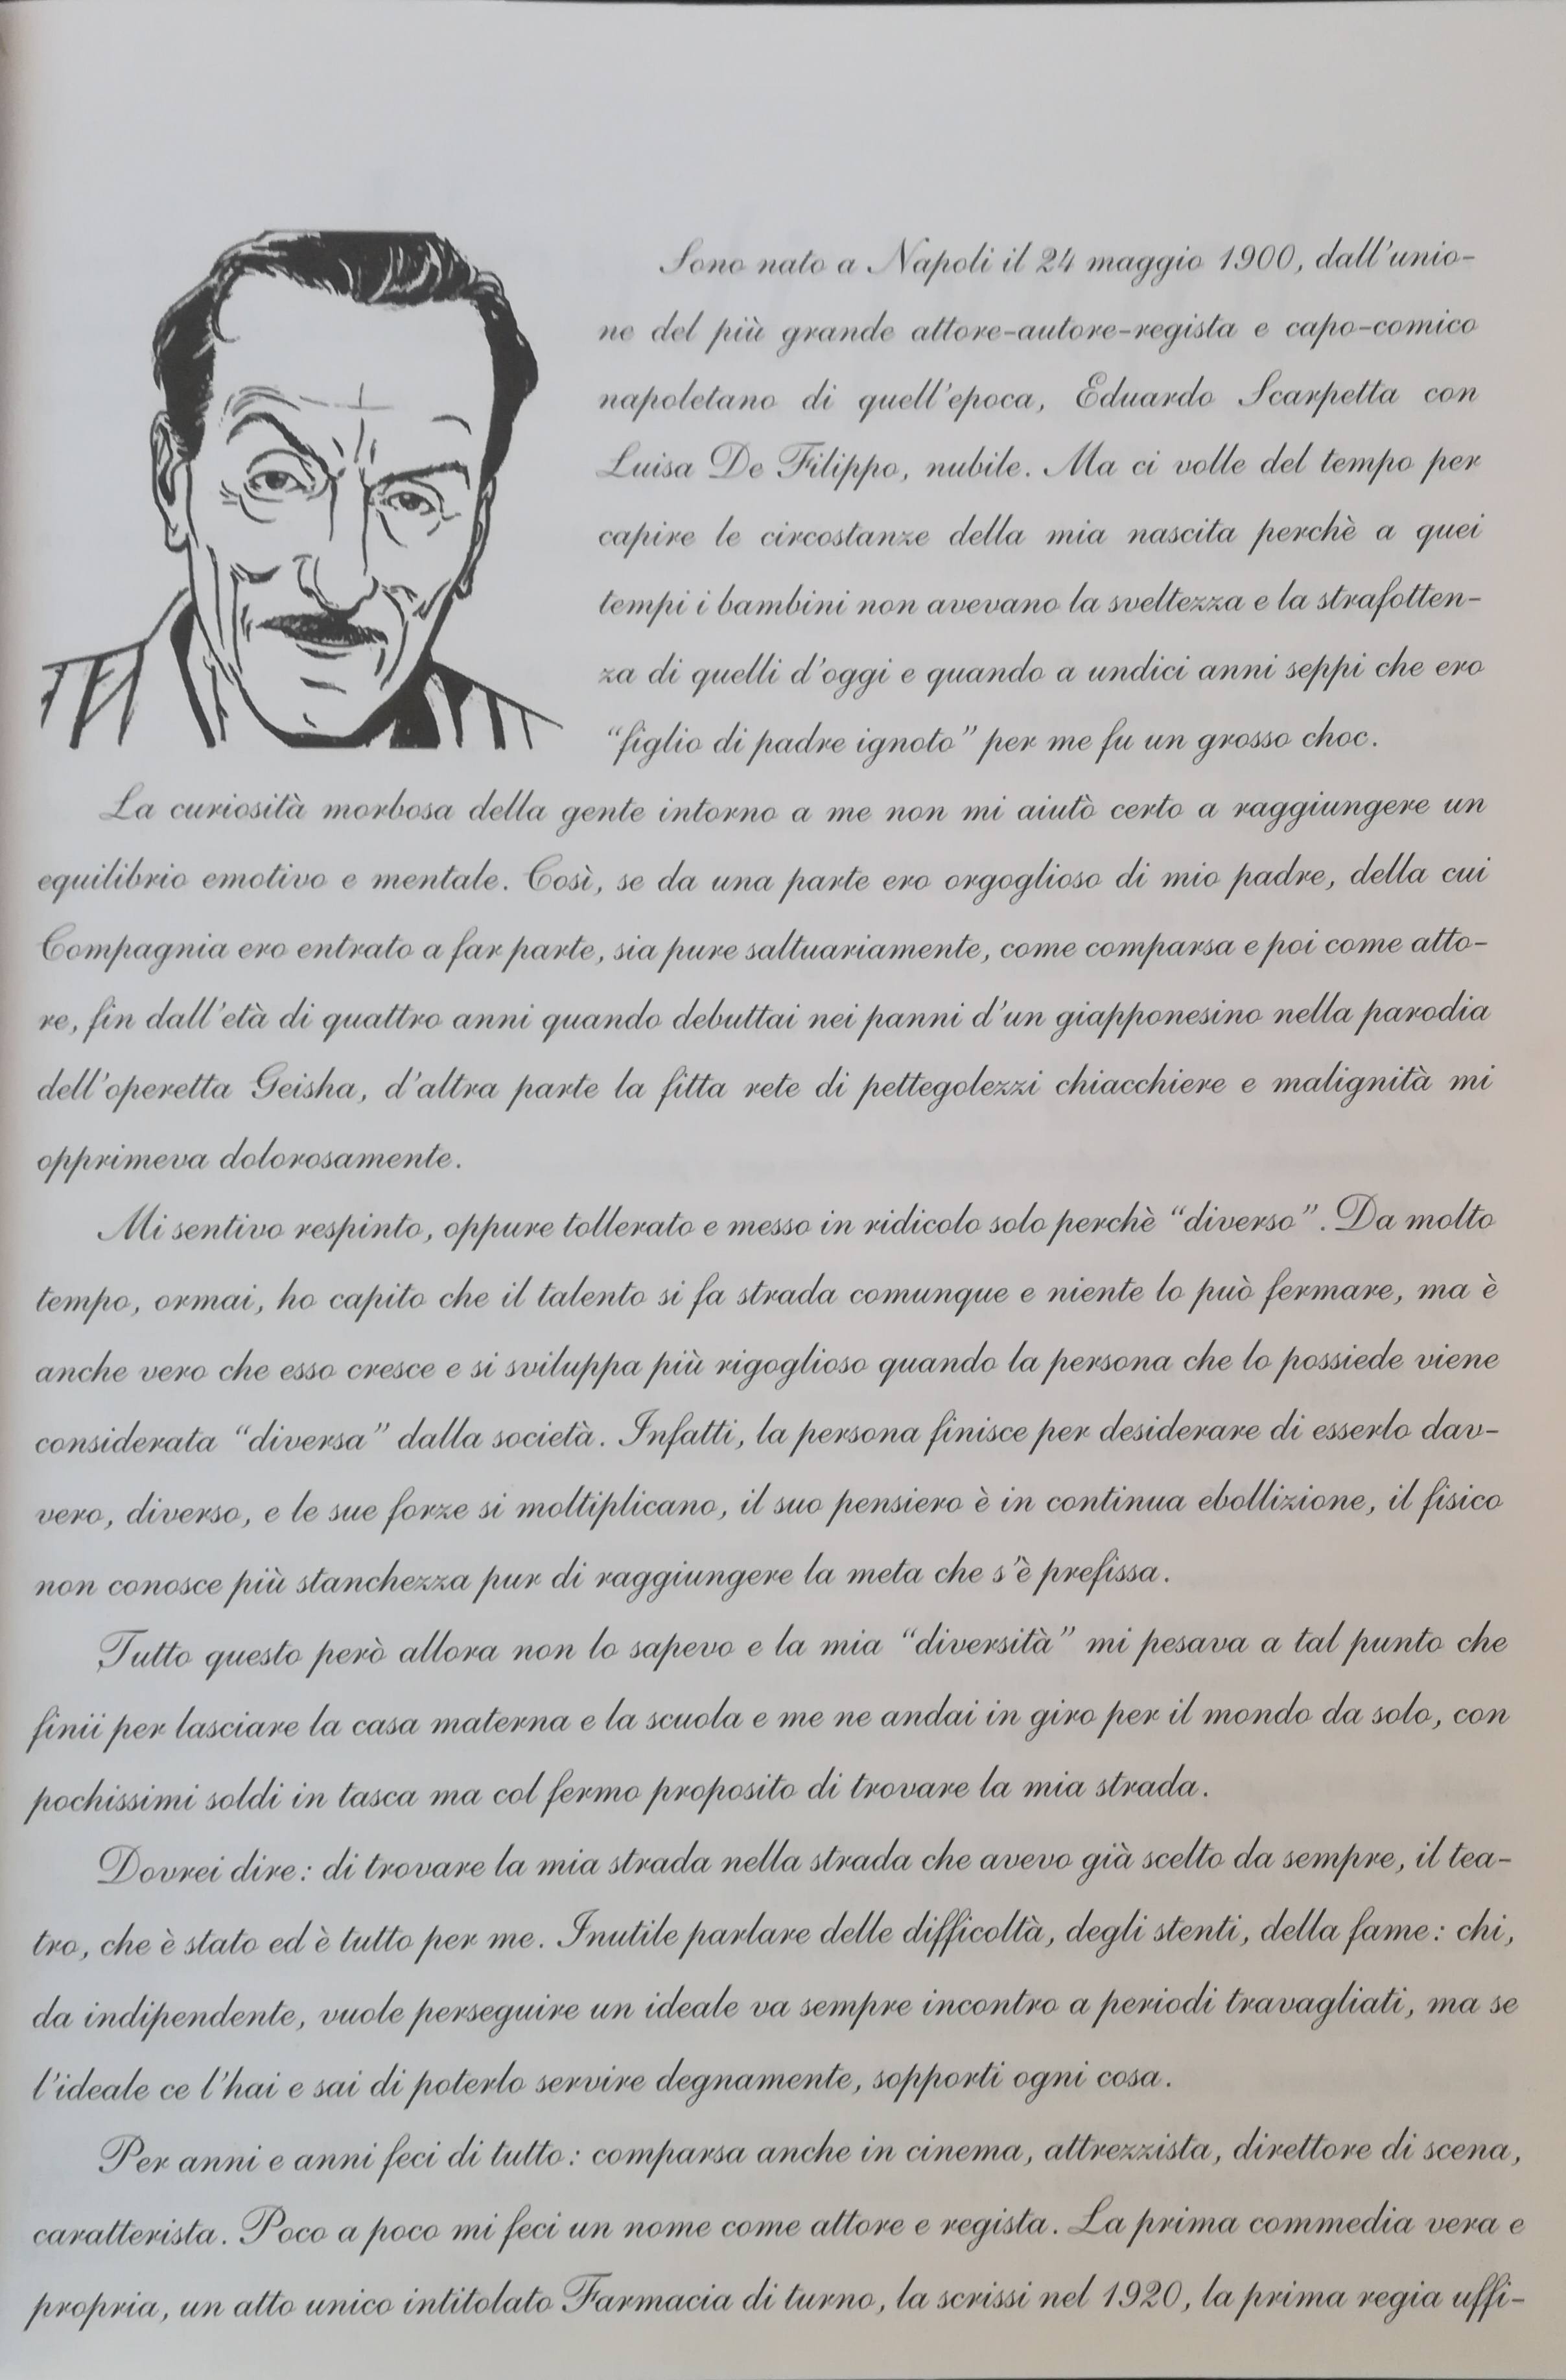 Sono nato a Napoli il 24 maggio 1900, dall'unio-
ne del più grande attore-autore-regista e capo-comico
napoletano di quell'epoca, Eduardo Scarpetta con
Luisa De Filippo, nubile. Ma ci volle del tempo per
capire le circostanze della mia nascita perchè a quei
tempi i bambini non avevano la sveltezza e la strafotten-
za di quelli d'oggi e quando a undici anni seppi che ero
“figlio di padre ignoto” per me fu un grosso choc.
La curiosità morbosa della gente intorno a me non mi aiutò certo a raggiungere un
equilibrio emotivo e mentale. Così, se da una parte ero orgoglioso di mio padre, della cui
Compagnia ero entrato a far parte, sia pure saltuariamente, come comparsa e poi come atto-
re, fin dall'età di quattro anni quando debuttai nei panni d'un giapponesino nella parodia
dell'operetta Geisha, d'altra parte la fitta rete di pettegolezzi chiacchiere e malignità mi
opprimeva dolorosamente.
Mi sentivo respinto, oppure tollerato e messo in ridicolo solo perchè “diverso”. Da molto
tempo, ormai, ho capito che il talento si fa strada comunque e niente lo può fermare, ma è
anche vero che esso cresce e si sviluppa più rigoglioso quando la persona che lo possiede viene
considerata “diversa” dalla società. Infatti, la persona finisce per desiderare di esserlo dav-
vero, diverso, e le sue forze si moltiplicano, il suo pensiero è in continua ebollizione, il fisico
non conosce più stanchezza pur di raggiungere la meta che s'è prefissa.
Tutto questo però allora non lo sapevo e la mia “diversità” mi pesava a tal punto che
finii per lasciare la casa materna e la scuola e me ne andai in giro per il mondo da solo, con
pochissimi soldi in tasca ma col fermo proposito di trovare la mia strada.
Dovrei dire: di trovare la mia strada nella strada che avevo già scelto da sempre, il tea-
tro, che è stato ed è tutto per me. Inutile parlare delle difficoltà, degli stenti, della fame: chi,
da indipendente, vuole perseguire un ideale va sempre incontro a periodi travagliati, ma se
l'ideale ce l'hai e sai di poterlo servire degnamente, sopporti ogni cosa.
Per anni e anni feci di tutto: comparsa anche in cinema, attrezzista, direttore di scena,
caratterista. Poco a poco mi feci un nome come attore e regista. La prima commedia vera e
propria, un atto unico intitolato Farmacia di turno, la scrissi nel 1920, la prima regia uffi-